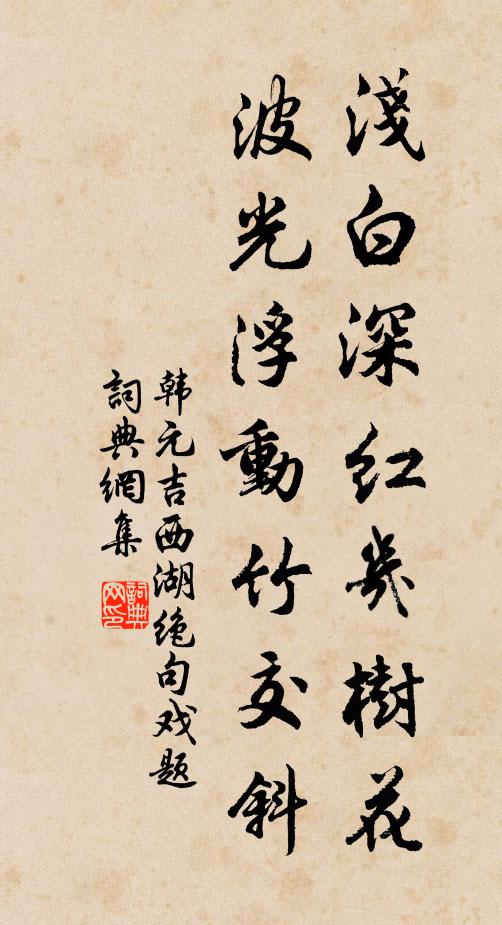 淺白深紅幾樹花
波光浮動竹交斜
韩元吉西湖绝句戏题
詞典網集
詞典
网印